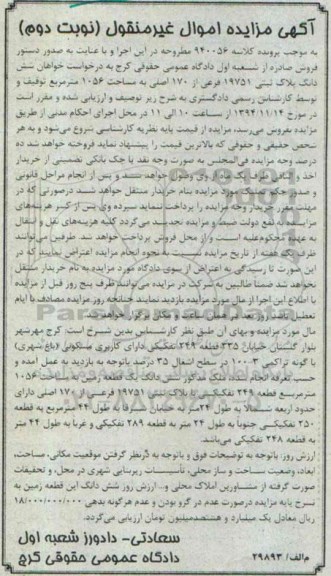 آگهی مزایده اموال غیرمنقول (نوبت دوم)
به موجب پرونده کلاسه ۹۴۰۰۵۶ مطروحه در این اجرا و با عنایت به صدور دستور
فروش صادره از شعبه اول دادگاه عمومی حقوقی کرج به درخواست خواهان شش
دانگ پلاک ثبتی ۱۹۷۵۱ فرعی از ۱۷۰ اصلی به مساحت ۱۰۵۶ مترمربع توقیف و
توسط کارشناس رسمی دادگستری به شرح زیر توصیف و ارزیابی شده و مقرر است
در مورخ ۱۳۹۴/۱۱/۱۴ از ساعت ۱۰ الی ۱۱ در محل اجرای احکام مدنی از طریق
مزایده بفروش می‌رسد، مزایده از قیمت پایه نظریه کارشناسی شروع می‌شود و به هر
شخص حقیقی و حقوقی که بالاترین قیمت را پیشنهاد نماید فروخته خواهد شد ده
درصد وجه مزایده فی‌المجلس به صورت وجه نقد یا چک بانکی تضمینی از خریدار
اخذ و الباقی ظرف یک ماه از وی وصول خواهد شد و پس از انجام مراحل قانونی
و صدور حکم تملیک مورد مزایده بنام خریدار منتقل خواهد شد درصورتی که در
مهلت مقرر خریدار وجه مزایده را پرداخت ننماید سپرده وی پس از کسر هزینه‌های
مزایده به نفع دولت ضبط و مزایده تجدید می‌گردد کلیه هزینه‌های نقل و انتقال
به عهده محکوم‌علیه است و از محل فروش پرداخت خواهد شد. طرفین می‌توانند
ظرف یک هفته از تاریخ مزایده نسبت به نحوه انجام مزایده اعتراض نمایند که در
این صورت تا رسیدگی به اعتراض از سوی دادگاه مورد مزایده به نام خریدار منتقل
نخواهد شد ضمنا طالبین به شرکت در مزایده می‌توانند ظرف پنج روز قبل از مزایده
با اطلاع این اجرا از مال مورد مزایده بازدید نمایند چنانچه روز مزایده مصادف با ایام
تعطیل باشد روز بعد از تعطیل در همان ساعت و مکان برگزار خواهد شد.
مال مورد مزایده و بهای آن طبق نظر کارشناس بدین شرح است: کرج مهرشهر
بلوار گلستان خیابان ۳۳۵ قطعه ۲۴۹ تفکیکی دارای کاربری مسکونی (باغ شهری)
با گونه تراکمی ۳-۱۰۰ در سطح اشغال ۳۵ درصد باتوجه به بازدید به عمل آمده و
حسب معرفه انجام شده، ملک مذکور شش دانگ یک قطعه زمین به مساحت ۱۰۵۶
مترمربع قطعه ۲۴۹ تفکیکی با پلاک ثبتی ۱۹۷۵۱ فرعی از ۱۷۰ اصلی دارای
حدود اربعه شمالا به طول ۲۴ متر به خیابان شرقا به طول ۴۴ مترمربع به قطعه
۲۵۰ تفکیکی جنوبا به طول ۲۴ متر به قطعه ۲۸۹ تفکیکی و غربا به طول ۴۴ متر
به قطعه ۲۴۸ تفکیکی می‌باشد.
ارزش روز: باتوجه به توضیحات فوق و باتوجه به درنظر گرفتن موقعیت مکانی، مساحت،
ابعاد، وضعیت ساخت و ساز محلی، تأسیسات زیربنایی شهری در محل، و تحقیقات
صورت گرفته از مشاورین املاک محلی و... ارزش روز شش دانگ این قطعه زمین به
نسرح پایه مزایده درصورت عدم در گرو بودن و عدم هرگونه بدهی ۱۸/۰۰۰/۰۰۰/۰۰۰
ریال معادل یک میلیارد و هشتصدمیلیون تومان ارزیابی می‌گردد.
سعادتی- دادورز شعبه اول
دادگاه عمومی حقوقی کرج
م‌الف/ ۲۹۸۹۳